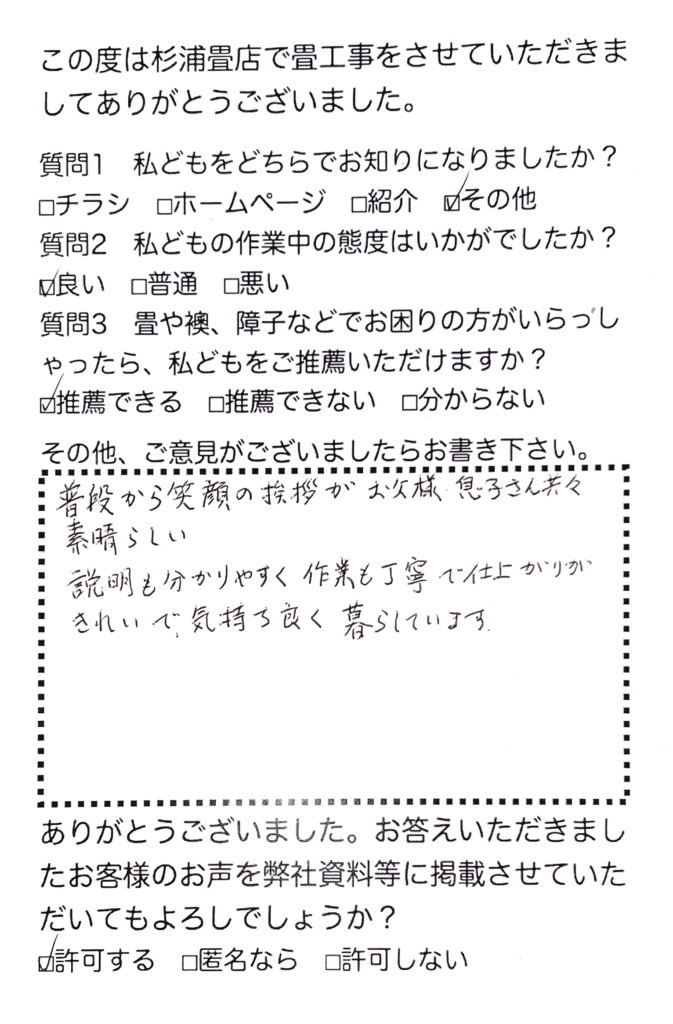 この度は杉浦畳店で畳工事をさせていただきま
してありがとうございました。
質問1　私どもをどちらでお知りになりましたか？
□チラシ　□ホームページ　□紹介　☑その他
質問2　私どもの作業中の態度はいかがでしたか？
☑良い　□普通　□悪い
質問3　畳や襖、障子などでお困りの方がいらっし
ゃったら、私どもをご推薦いただけますか？
☑推薦できる　□推薦できない　□分からない
その他、ご意見がございましたらお書き下さい。
普段から笑顔の挨拶がお父様、息子さん共々
素晴らしい
説明も分かりやすく作業も丁寧で仕上がりが
きれいで、気持ち良く暮らしています。
ありがとうございました。お答えいただきまし
たお客様のお声を弊社資料等に掲載させていた
だいてもよろしでしょうか？
☑許可する　□匿名なら　□許可しない